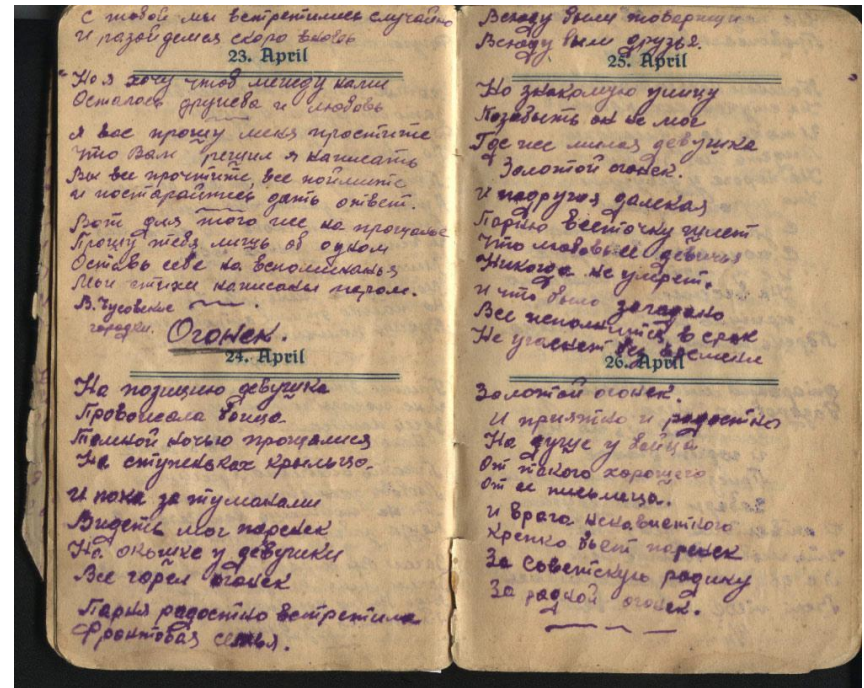 С тобой мы встретились случайно
И разойдемся скоро вновь
23. April
Но я хочу чтоб между нами
Осталось дружева и любовь
Я вас прошу меня простите
Что Вам решил я написать
Вы все прочтите, все поймите
и постарайтесь дать ответ.
Вот для того же на прощанье
Прошу тебя лишь об одном
Оставь себе на вспоминанья
Мои стихи написаны пером.
В. Чусовские
городки.
Огонек.
24. April
На позицию девушка
Провожала бойца
Темной ночью прощалися
На ступеньках крыльца.
И пока за туманами
Видеть мог паренек
На окошке у девушки
Все горел огонек
Парня радостно встретила
Фронтовая семья.
Всюду были товарищи
Всюду были друзья.
25. April
Но знакомую улицу
Позабыть он не мог
Где же милая девушка
Золотой огонек.
И подружка далекая
Парню весточку шлет
Что любовь ее девичья
Никогда не умрет.
И что было загадано
Все исполнится в срок
Не угаснет без времени
26. April
Золотой огонек.
И приятно и радостно
На душе у бойца
От такого хорошего
От ее письмеца.
И врага ненавистного
Крепко бьет паренек
За советскую родину
За родной огонек.